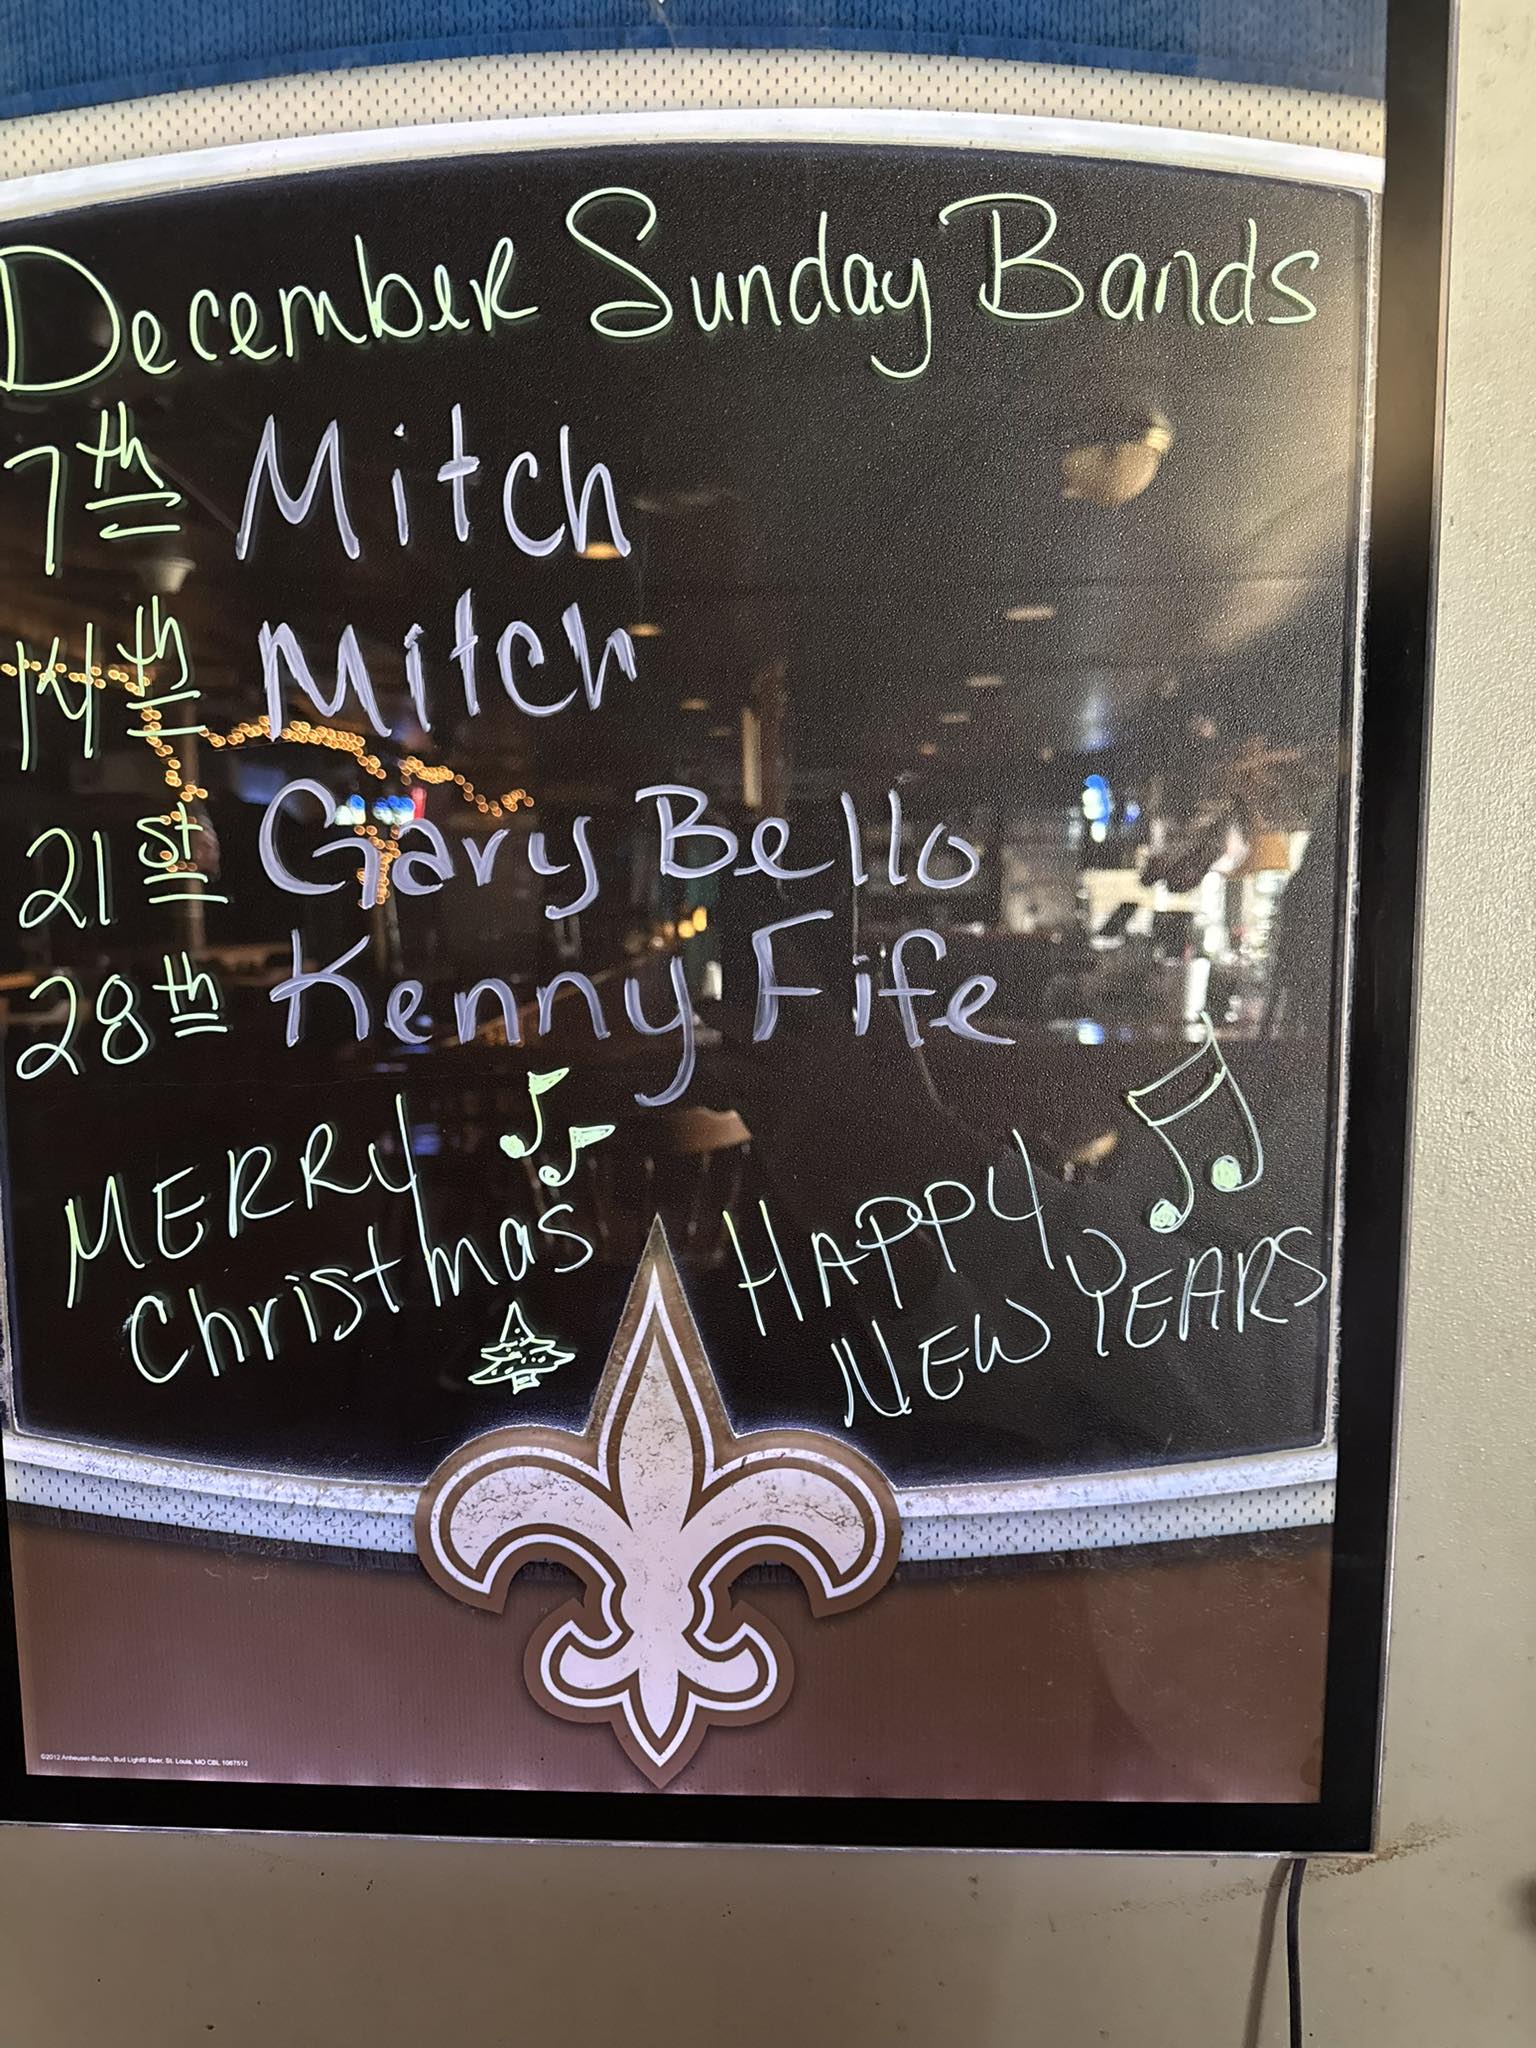 December Sunday Bands
7th Mitch
14th Mitch
21st Gary Bello
28th Kenny Fife
MERRY
Christmas
HAPPY
NEW YEARS
©2012 Anheuser-Busch, Bud Light® Beer, St. Louis, MO CBL 1067512